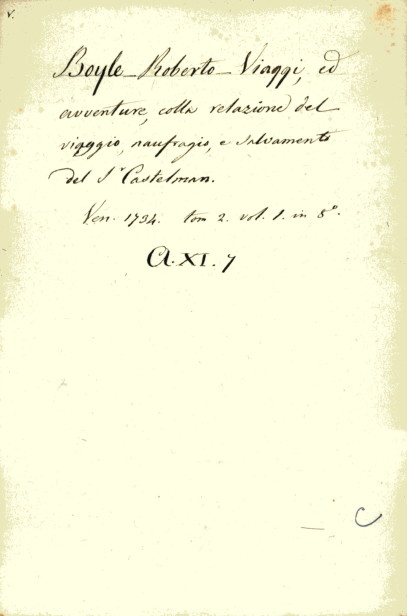 v.
Boyle_Roberto_Viaggi, ed
avventure, colla relazione del
viaggio, naufragio, e salvamento
del Sr Castelman.
Ven. 1734. tom 2. vol. 1. in 8o.
A.XI.7
C